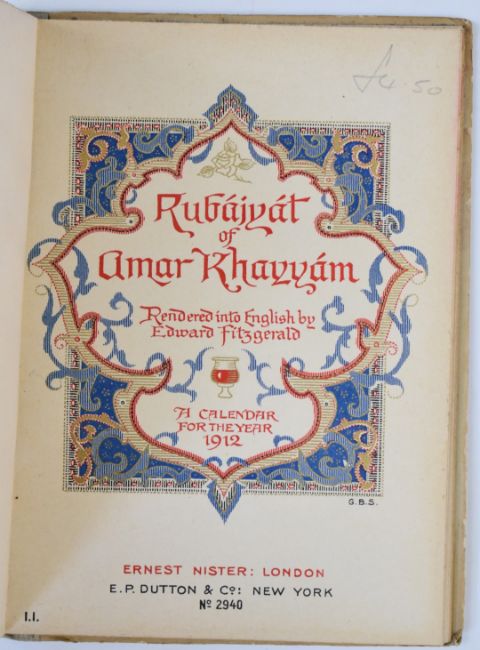 £4.50
Rubáiyát
of
Omar Khayyám
Rendered into English by
Edward Fitzgerald
A CALENDAR
FOR THE YEAR
1912
G.B.S.
ERNEST NISTER: LONDON
E.P. DUTTON & Cº: NEW YORK
Nº 2940
I.I.